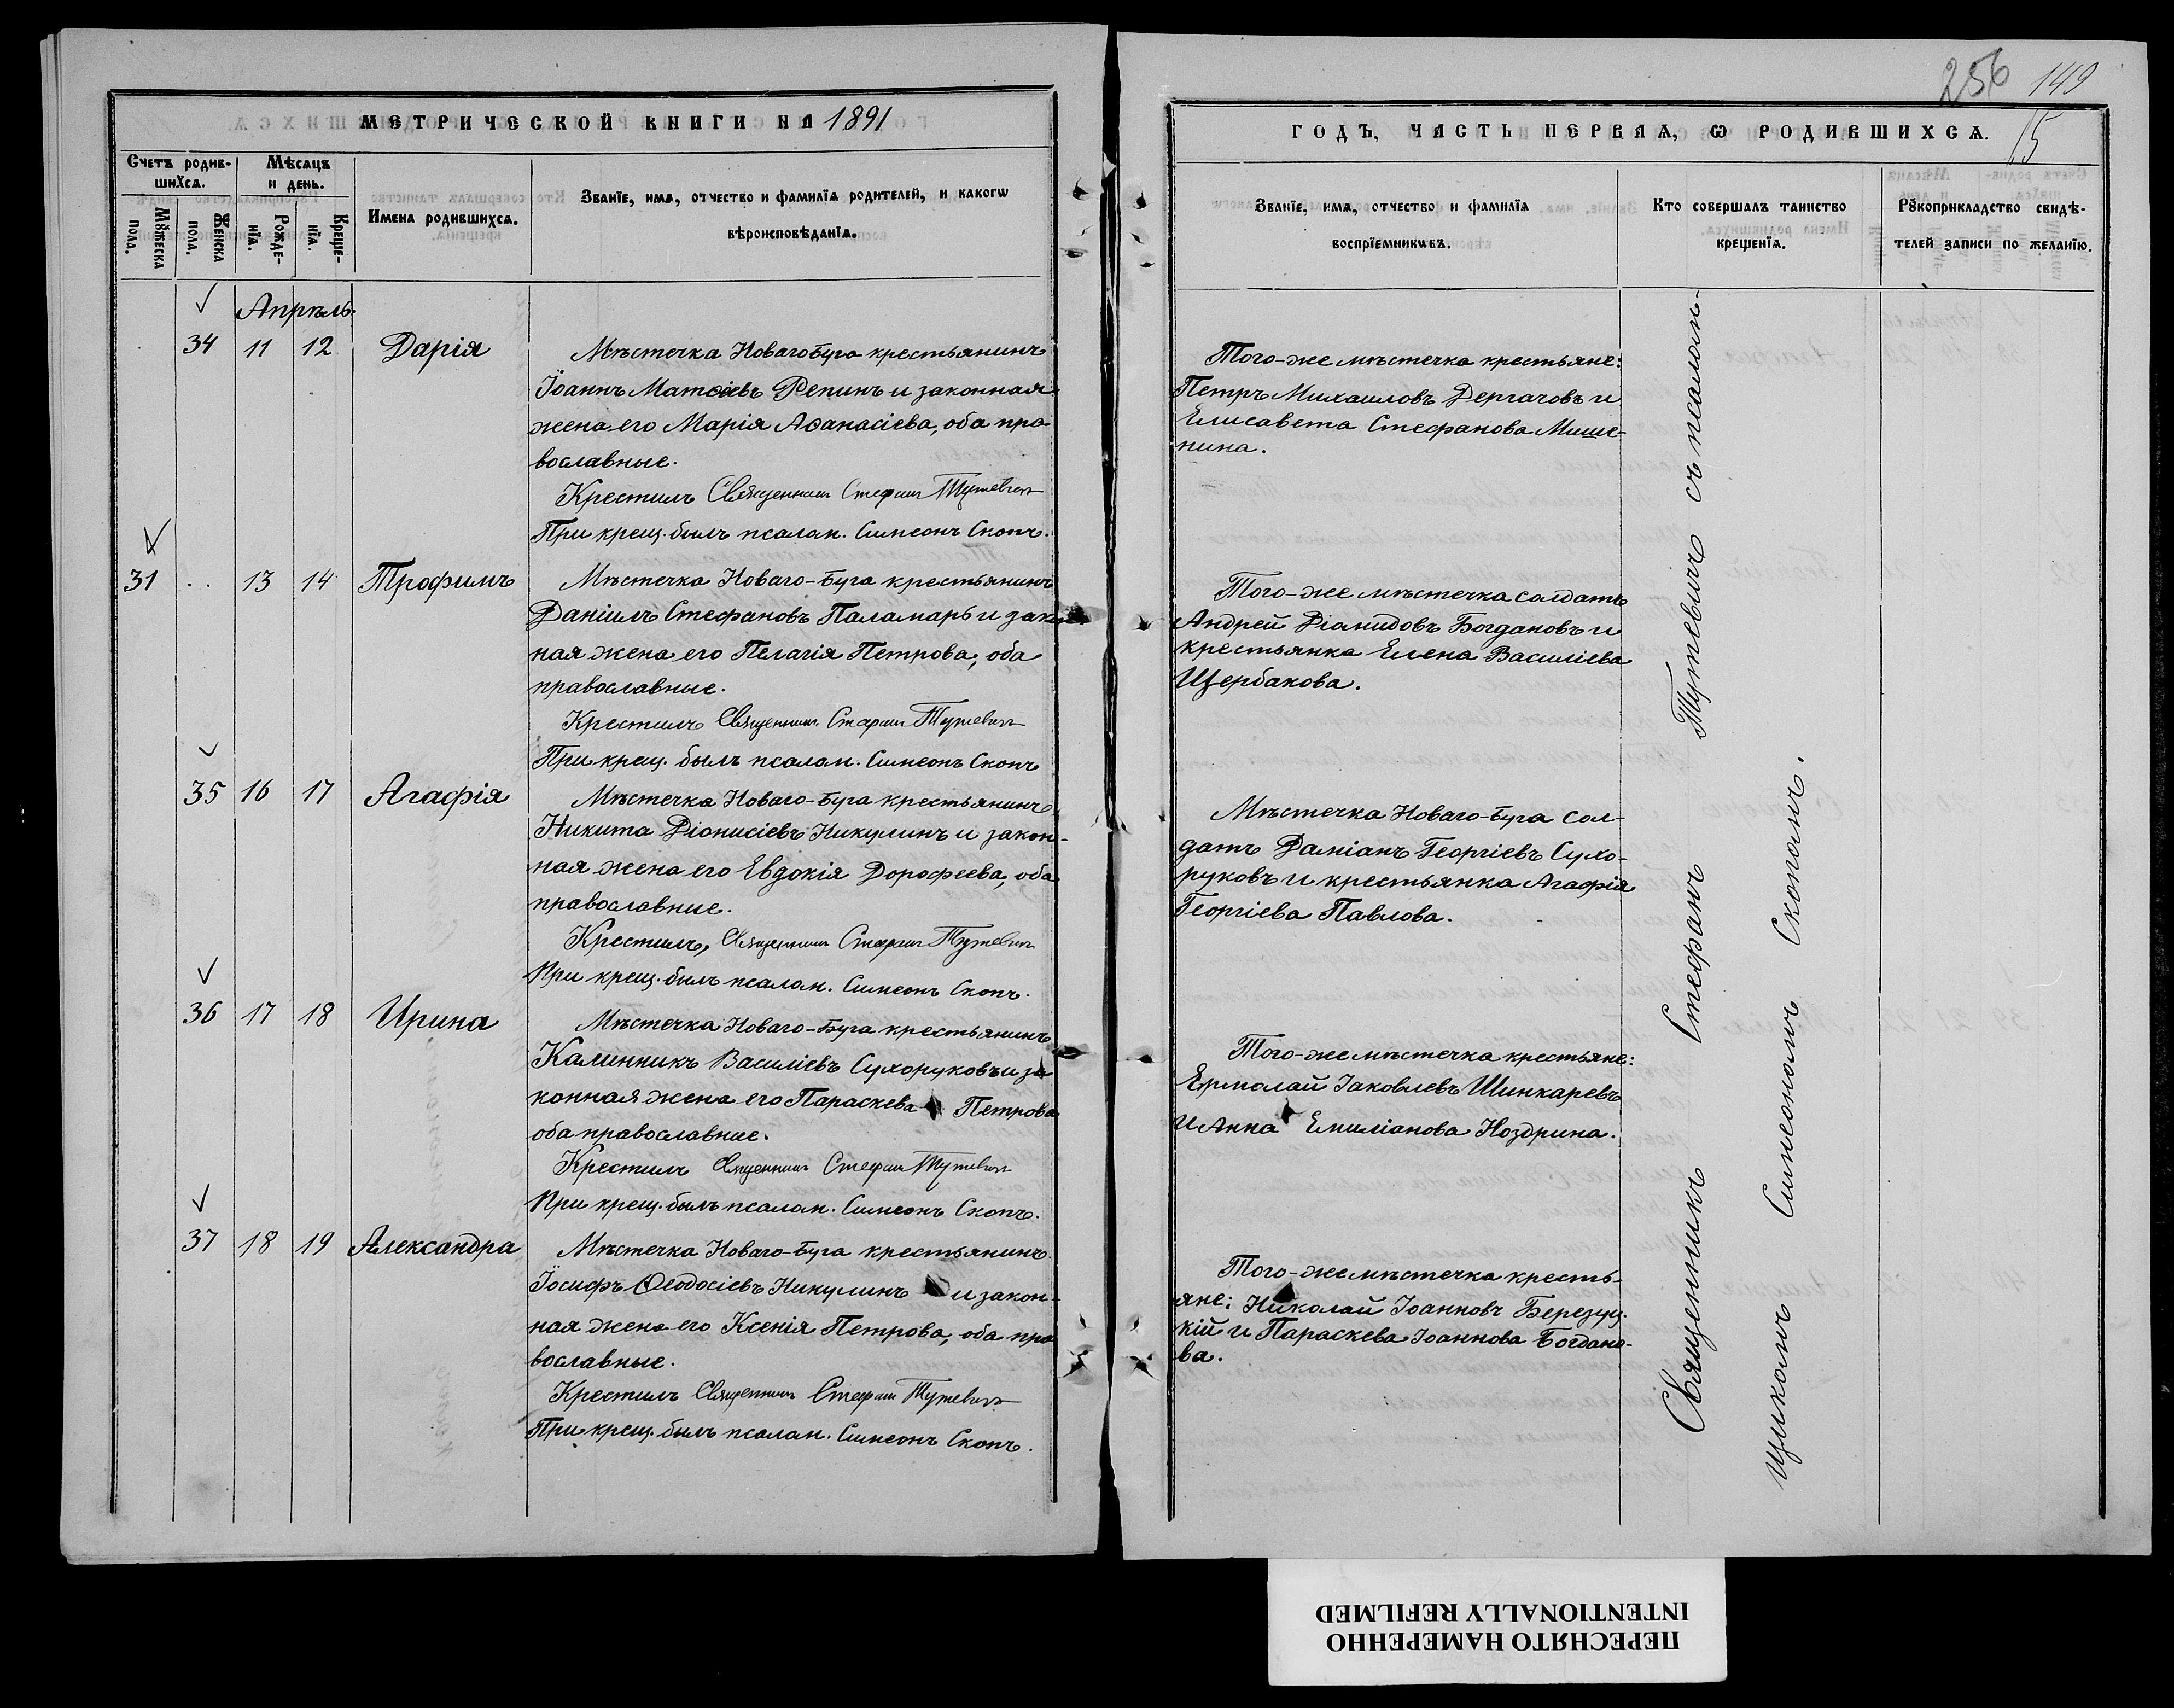 256 149
МЕТРИЧЕСКОЙ КНИГИ НА 1891
ГОДЪ, ЧАСТЬ ПЕРВАЯ, Ѡ РОДИВШИХСѦ. 15
Счетъ родив-
шихсѧ.
Мѣсяцъ
и день.
Мꙋжеска
пола.
Женска
пола.
Рожде-
нїѧ.
Креще-
нїѧ.
Имена родившихсѧ.
Званїе, имѧ, отчество и фамилїѧ родителей, и какогѡ
вѣроисповѣданїѧ.
Званїе, имѧ, отчество и фамилїѧ
воспрїемникѡвъ.
Кто совершалъ таинство
крещенїѧ.
Рꙋкоприкладство свидѣ-
телей записи по желанїю.
Апрѣль.
34 11 12 Дарія
Мѣстечка Новаго Буга крестьянинъ
Іоаннъ Матѳіевъ Репинъ и законная
жена его Марія Аѳанасіева, оба пра
вославные.
Крестилъ Священникъ Стефанъ Тутевичъ
При крещ. былъ псалом. Симеонъ Скопч.
Того-же мѣстечка крестьяне:
Петръ Михаиловъ Дергачовъ и
Елисавета Стефанова Мише-
нина.
31 .. 13 14 Трофимъ
Мѣстечка Новаго-Буга крестьянинъ
Даніилъ Стефановъ Паламарь и зак
ная жена его Пелагія Петрова, оба
православные.
Крестилъ Священникъ Стефанъ Тутевичъ
При крещ. былъ псалом. Симеонъ Скопч
Того-же мѣстечка солдатъ
Андрей Діамидовъ Богдановъ и
крестьянка Елена Василіева
Щербакова.
35 16 17 Агафія
Мѣстечка Новаго-Буга крестьянинъ
Никита Діонисіевъ Никулинъ и закон-
ная жена его Евдокія Дорофеева, оба
православные.
Крестилъ, Священникъ Стефанъ Тутевичъ
При крещ. былъ псалом. Симеонъ Скопч.
Мѣстечка Новаго-Буга сол-
датъ Даміанъ Георгіевъ Сухо-
руковъ и крестьянка Агафія
Георгіева Павлова.
36 17 18 Ирина
Мѣстечка Новаго-Буга крестьянинъ
Калинникъ Василіевъ Сухоруковъ и за
конная жена его Параскева Петрова
оба православные.
Крестилъ Священникъ Стефанъ Тутевичъ
При крещ. былъ псалом. Симеонъ Скопч.
Того-же мѣстечка крестьяне:
Ермолай Іаковлевъ Шинкаревъ
и Анна Емиліанова Ноздрина.
37 18 19 Александра
Мѣстечка Новаго-Буга крестьянинъ
Іосифъ Ѳеодосіевъ Никулинъ и закон-
ная жена его Ксенія Петрова, оба пра
вославные.
Крестилъ Священникъ Стефанъ Тутевичъ
При крещ. былъ псалом. Симеонъ Скопч.
Того-же мѣстечка кресть-
яне: Николай Іоанновъ Березуц-
кій и Параскева Іоаннова Богдано-
ва.
Священникъ Стефанъ Тутевичъ съ псалом-
щикомъ Симеономъ Скопомъ.
ПЕРЕСНЯТО НАМЕРЕННО
INTENTIONALLY REFILMED